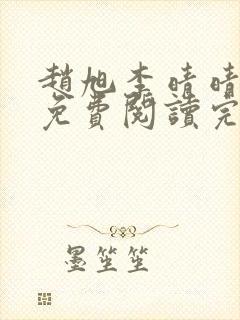 趙旭李晴晴
免費閱讀完
墨笙笙